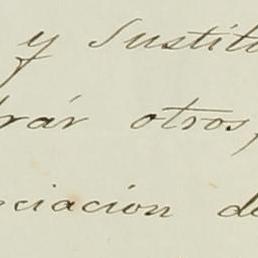 y Sustitu
trár otros,
nciacion de